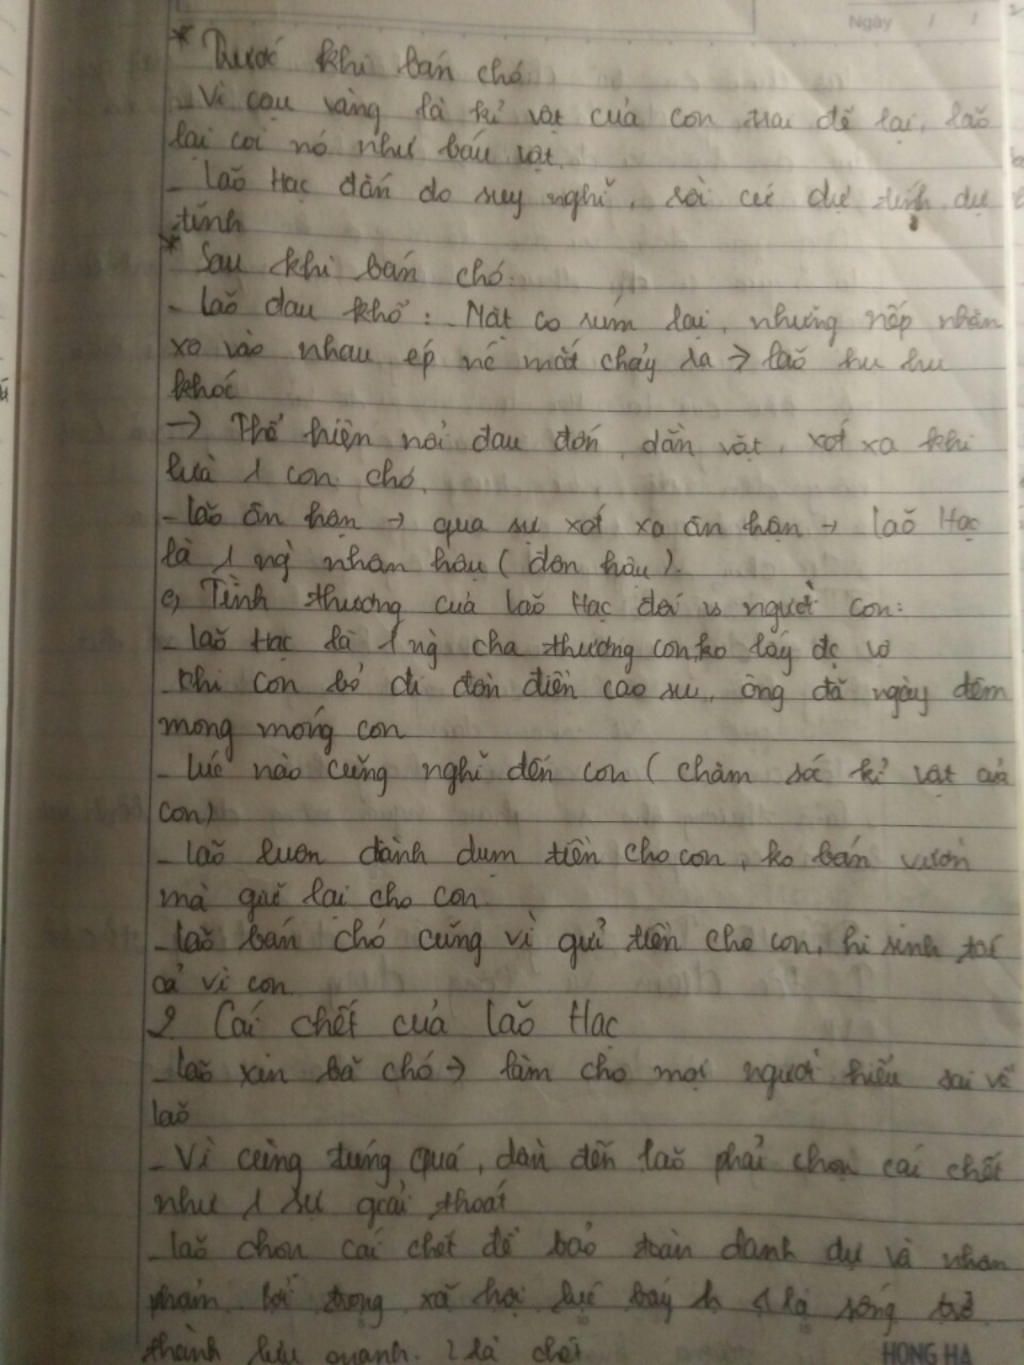 Ngày / /
* Trước khi bán chó
- Vì cậu vàng là kỉ vật của con trai để lại, lão
lại coi nó như báu vật.
- Lão Hạc đắn đo suy nghĩ, rồi cứ dự tính dự
tính
* Sau khi bán chó:
- Lão đau khổ: Mặt co rúm lại, những nếp nhăn
xô vào nhau ép nc mắt chảy ra → lão hu hu
khóc
→ Thể hiện nỗi đau đớn, dằn vặt, xót xa khi
lừa 1 con chó.
- Lão ân hận → qua sự xót xa ân hận → Lão Hạc
là 1 ng` nhân hậu (đôn hậu).
c, Tình thương của Lão Hạc đối vs người con:
- Lão Hạc là 1 ng` cha thương con ko lấy đc vợ
- Khi con bỏ đi đồn điền cao su, ông đã ngày đêm
mong móng con
- Lúc nào cũng nghĩ đến con (chăm sóc kỉ vật của
con)
- Lão luôn dành dụm tiền cho con, ko bán vườn
mà giữ lại cho con
- Lão bán chó cũng vì giử tiền cho con, hi sinh tất
cả vì con
2 Cái chết của Lão Hạc
- Lão xin bả chó → làm cho mọi người hiểu sai về
lão
- Vì cùng túng quá, dẫn đến lão phải chọn cái chết
như 1 sự giải thoát
- Lão chọn cái chết để bảo toàn danh dự và nhân
phẩm bởi trong xã hội lúc bấy h 1 là sống trở
thành lưu manh. 2 là chết
HONG HA